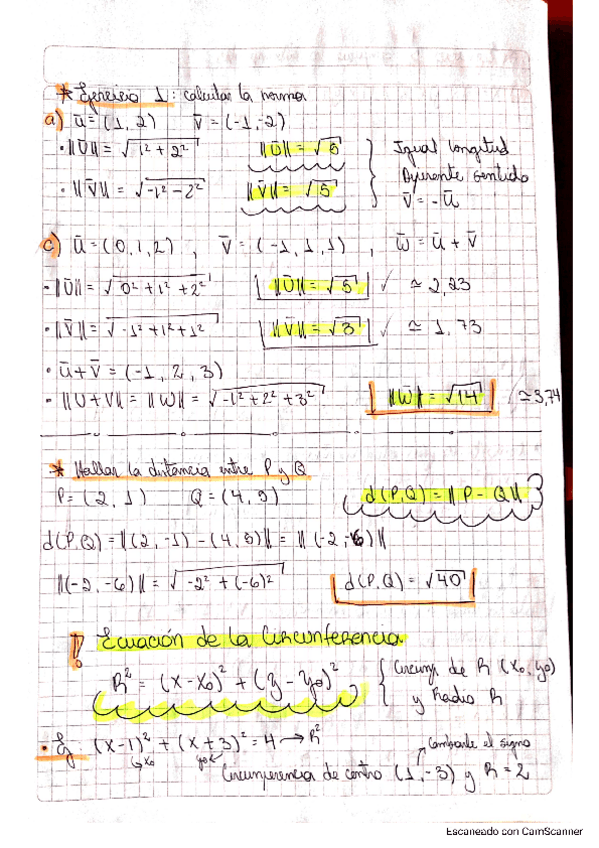 * Ejercicio 1: calcular la norma
a) ū = (1, 2)   v̄ = (-1, -2)
• ||ū|| = √(1² + 2²)   ||ū|| = √5   } Igual longitud
Diferente sentido
• ||v̄|| = √(-1² - 2²)   ||v̄|| = √5   v̄ = -ū
c) ū = (0, 1, 2) , v̄ = (-1, 1, 1) , w̄ = ū + v̄
• ||ū|| = √(0² + 1² + 2²)   ||ū|| = √5 ✓ ≃ 2,23
• ||v̄|| = √(-1² + 1² + 1²)   ||v̄|| = √3 ✓ ≃ 1,73
• ū + v̄ = (-1, 2, 3)
• ||U + V|| = ||W|| = √(-1² + 2² + 3²)   ||w̄|| = √14 ✓ ≃ 3,74
* Hallar la distancia entre P y Q
P = (2, 1)   Q = (4, 5)   d(P,Q) = ||P - Q||
d(P,Q) = ||(2, -1) - (4, 5)|| = ||(-2, -6)||
||(-2, -6)|| = √(-2² + (-6)²)   d(P,Q) = √40
! Ecuación de la Circunferencia
R² = (x - x₀)² + (y - y₀)² { Circunf de R (x₀, y₀)
y Radio R
• Ej (x-1)² + (x+3)² = 4 → R²
↳ x₀   y₀   cambiarle el signo
Circunferencia de centro (1, -3) y R = 2
Escaneado con CamScanner